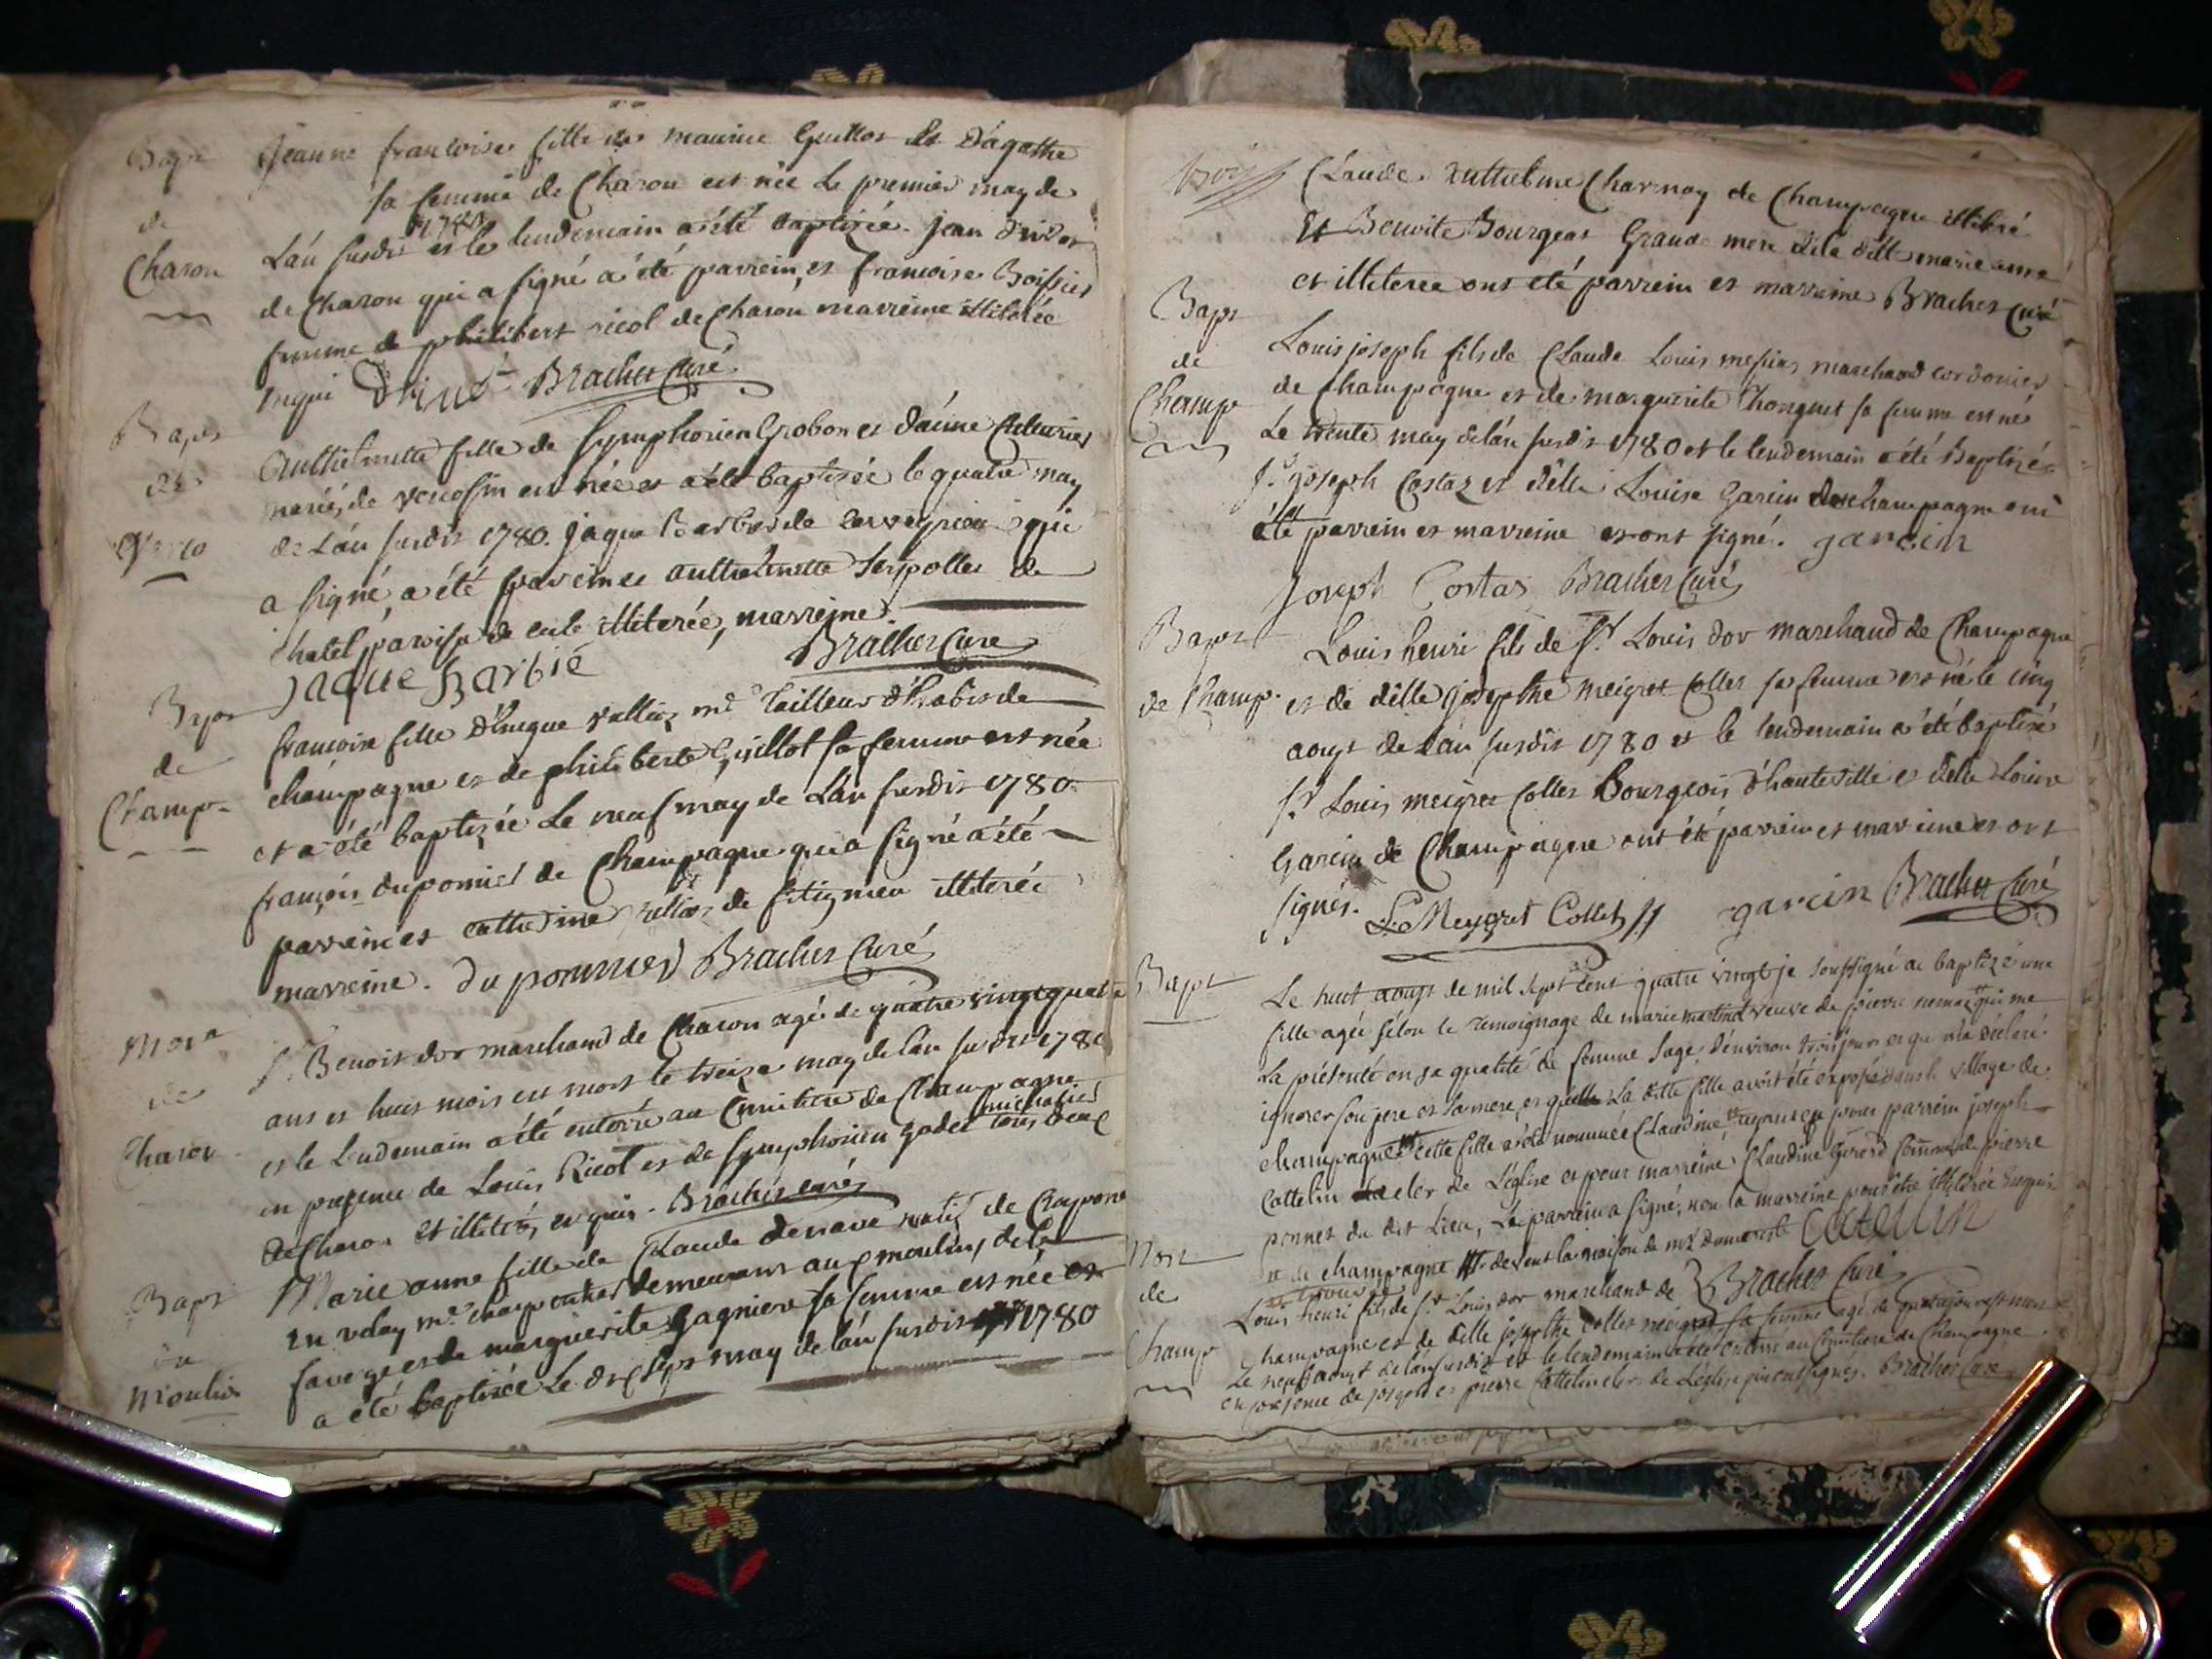 Bapt
de
Charon
Jeanne françoise fille de maurice Guillot et D'agathe
sa femme de Charon est née Le premier may de
L'an susdit 1780 et le lendemain a été baptizée. jean
de Charon qui a signé a été parrein, et françoise Boissier
femme de philibert ricol de Charon marreine illiterée
Brachet Curé
Bapt
de
Anthelmette fille de Symphorien Grobon et d'aime
mariés, de est née et a été baptizée le quatre may
de L'an susdit 1780. jaque Barbes de qui
a signé, a été parrein et anthelmette de
Chatel, paroisse de illiterée, marreine.
Jaque Barbié Brachet Curé
Bapt
de
Champ-
françoise fille D'huque valliez md Tailleur d'habis de
champagne et de philiberte Guillot sa femme est née
et a été baptizée Le neuf may de L'an susdit 1780.
françois dupomier de Champagne qui a signé a été
parrein et catherine de fitignieu illiterée
marreine. du pommier Brachet Curé
Mort
de
Charon
Sr Benoit dor marchand de Charon agé de quatre vingt quatre
ans et huit mois est mort le treize may de L'an susdit 1780
et le Lendemain a été enterré au Cimitiere de Champagne
en presence de Louis Ricol et de Symphorien godet tous deux
de Charon et illiterés, Brachet curé
Bapt
du
Moulin
Marie anne fille de Claude denave natif de
en velay md charpentier demeurant aux moulins de la
faverge et de marguerite Gagniere sa femme est née et
a été baptizée Le dix sept may de L'an susdit 1780
Claude Anthelme Charnay de Champagne illiteré
Et Benoite Bourgeat Grande mere de la ditte marie anne
et illiteree ont été parrein et marreine Brachet Curé
Bapt
de
Champ
Louis joseph fils de Claude Louis messias marchand cordonier
de Champagne et de marguerite sa femme est né
Le trente may de L'an susdit 1780 et le lendemain a été Baptizé
Sr joseph Costaz et d'elle Louise Garcin de champagne ont
été parrein et marreine et ont signé. garcin
Joseph Costaz Brachet Curé
Bapt
de Champ.
Louis henri fils de Sr Louis dor marchand de Champagne
et de d'elle josepthe meigret Collet sa femme est né le cinq
aoust de L'an susdit 1780 et le lendemain a été baptizé
Sr Louis meigret Collet Bourgeois d'hauteville et d'elle Louise
Garcin de Champagne ont été parrein et marreine et ont
signés. Le Meygret Collet garcin Brachet Curé
Bapt
Le huit aoust de mil sept cent quatre vingt je soussigné ai baptizé une
fille agée sélon le temoignage de marie martinod veuve de pierre qui me
La présenté en sa qualité de femme sage, d'environ trois jours et qui m'a déclaré
ignorer son pere et sa mere, et quelle La ditte fille avoit été exposée dans le village de
champagne cette fille a été nommée Claudine ayant eu pour parrein joseph
Cattelin cler de L'église et pour marreine Claudine Girerd femme de pierre
du dit Lieu, Le parrein a signé, non la marreine pour être illiterée
de champagne devant la maison de Catelin
Brachet Curé
Mort
de
Champ
Louis henri fils de Sr Louis dor marchand de
Champagne et de d'elle josepthe collet meigret sa femme agé de quatre jours est mort
Le neuf aoust de L'an susdit et le lendemain a été enterré au Cimitiere de Champagne
en presence de joseph et pierre Cattelin clers de L'église qui ont signés. Brachet Curé